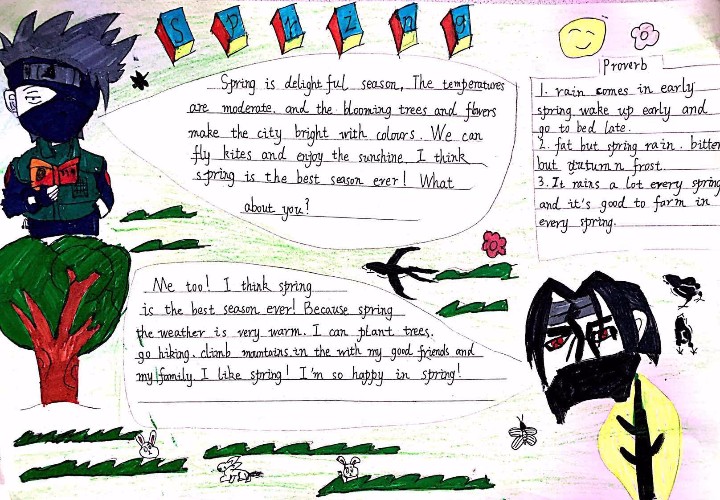 Spring
Spring is delightful season, The temperatures
are moderate. and the blooming trees and flowers
make the city bright with colours. We can
fly kites and enjoy the sunshine. I think
spring is the best season ever! What
about you?
Proverb
1. rain comes in early
spring. wake up early and
go to bed late.
2. fat but spring rain. bitter
but autumn frost.
3. It rains a lot every spring
and it's good to farm in
every spring.
Me too! I think spring
is the best season ever! Because spring
the weather is very warm. I can plant trees,
go hiking. climb mantains.in the with my good friends and
my family. I like spring! I'm so happy in spring!